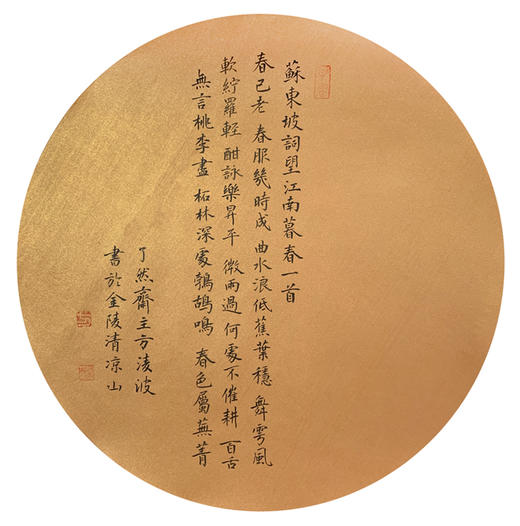 蘇東坡詞望江南暮春一首
春已老 春服幾時成 曲水浪低蕉葉穩 舞雩風
軟紵羅輕 酣詠樂昇平 微雨過 何處不催耕 百舌
無言桃李盡 柘林深處鵓鴣鳴 春色屬蕪菁
了然齋主方淩波
書於金陵清凉山